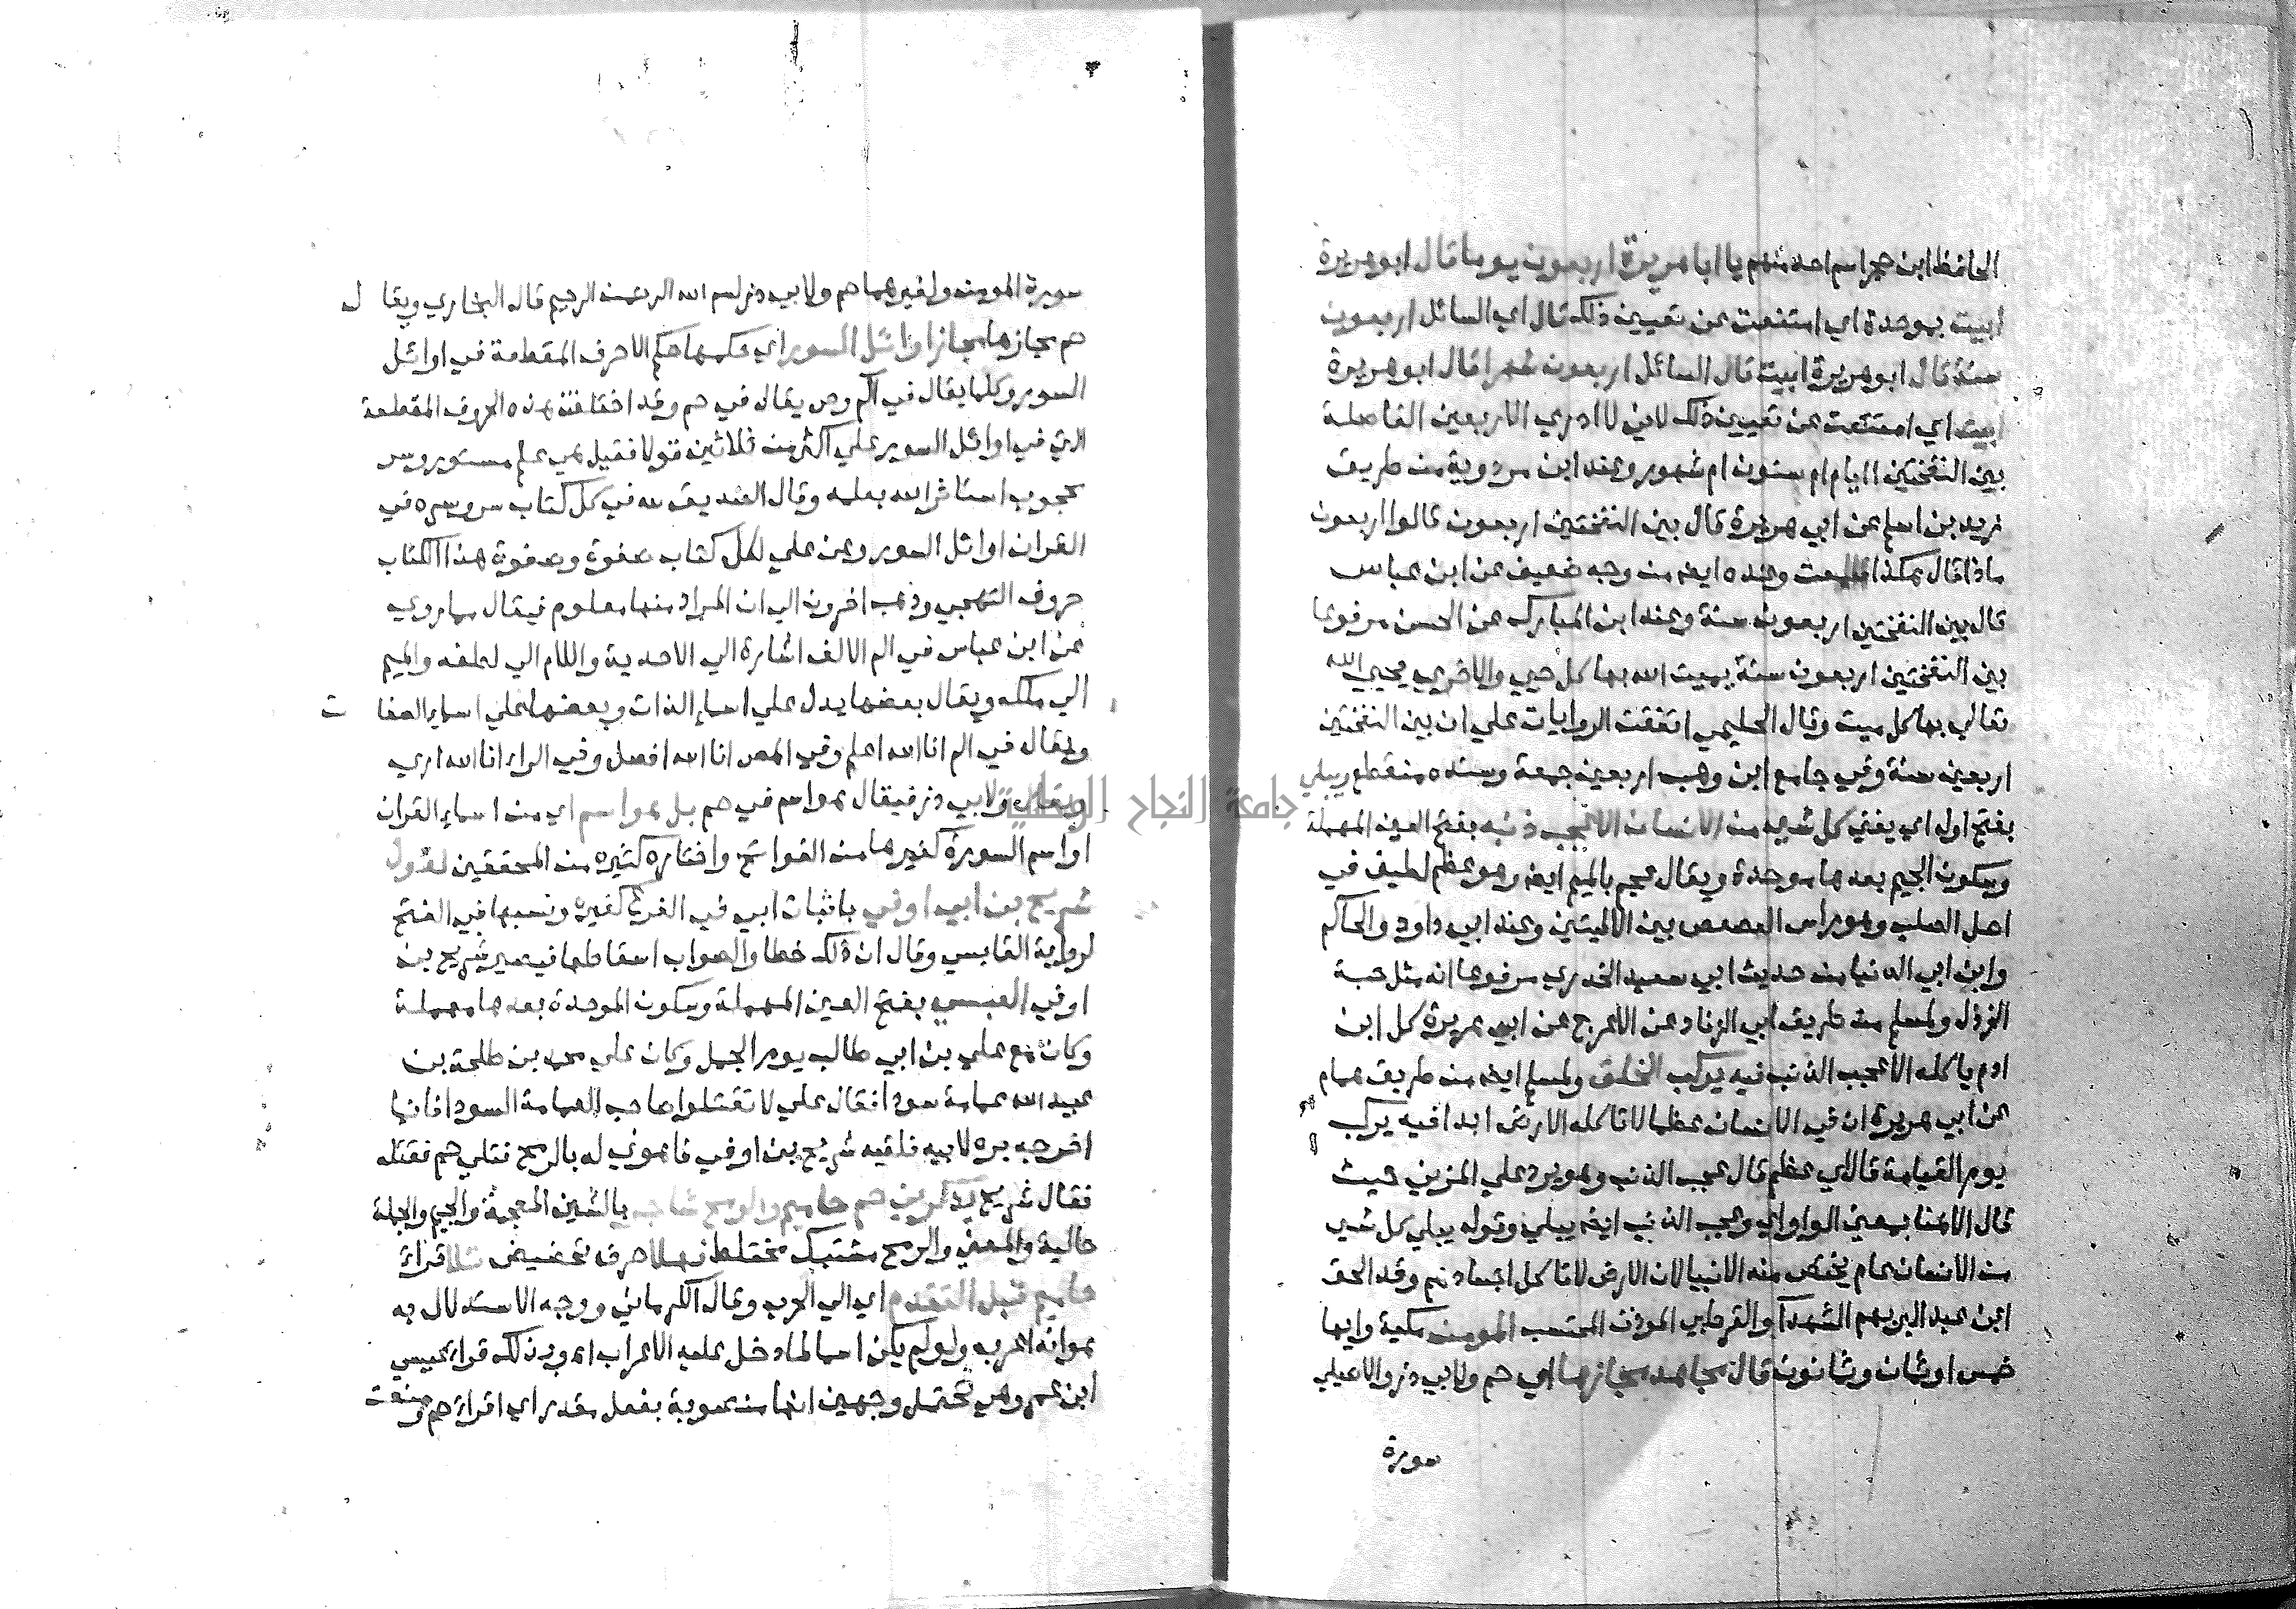 الحافظ ابن حجر اسم احد منهم يا ابا هريرة اربعون يوما قال ابو هريرة
ابيت بموحدة اي امتنعت عن تعيين ذلك قال اي السائل اربعون
سنة قال ابو هريرة ابيت قال السائل اربعون شهرا قال ابو هريرة
ابيت اي امتنعت عن تعيين ذلك لاني لا ادري الاربعين الفاصلة
بين النفختين اايام ام سنون ام شهور وعند ابن مردوية من طريق
زيد بن اسلم عن ابي هريرة قال بين النفختين اربعون قالوا اربعون
ماذا قال هكذا سمعت وعنده ايضا من وجه ضعيف عن ابن عباس
قال بين النفختين اربعون سنة وعند ابن المبارك عن الحسن مرفوعا
بين النفختين اربعون سنة يميت الله بها كل حيي والاخري يحيي الله
تعالي بها كل ميت وقال الحليمي اتفقت الروايات علي ان بين النفختين
اربعين سنة وفي جامع ابن وهب اربعين جمعة وسنده منقطع ويبلي
بفتح اوله اي يفني كل شيء من الانسان الا عجب ذنبه بفتح العين المهملة
وسكون الجيم بعدها موحدة ويقال عجم بالميم ايضا وهو عظم لطيف في
اصل الصلب وهو راس العصعص بين الاليتين وعند ابي داود والحاكم
وابن ابي الدنيا من حديث ابي سعيد الخدري مرفوعا انه مثل حبة
الخردل ولمسلم من طريق ابي الزناد عن الاعرج عن ابي هريرة كل ابن
ادم ياكله الا عجب الذنب فيه يركب الخلق ولمسلم ايضا من طريق همام
عن ابي هريرة ان في الانسان عظما لا تاكله الارض ابدا فيه يركب
يوم القيامة قال اي عظم قال عجب الذنب وهو يرد علي المزني حيث
قال الا هنا بمعني الواو اي وعجب الذنب ايضا يبلي وقوله يبلي كل شيء
من الانسان عام يختص منه الانبيا لان الارض لا تاكل اجسادهم وقد الحق
ابن عبد البر بهم الشهدآ والقرطبي الموذن المحتسب المومن مكية وايها
خمس او ثمان وثمانون قال مجاهد مجازها اي حم ولابي ذر والاصيلي
سورة
سورة المومن ولغيرهما حم ولابي ذر بسم الله الرحمن الرحيم قال البخاري ويقال
حم مجازها مجاز اوائل السور اي حكمها حكم الاحرف المقطعة في اوائل
السور وكلما يقال في الم وص يقال في حم وقد اختلف هذه الحروف المقطعة
التي في اوائل السور علي اكثر من ثلاثين قولا فقيل هي علم مستور وسر
محجوب استاثر الله بعلمه وقال الصديق لله في كل كتاب سر وسره في
القران اوائل السور وعن علي لكل كتاب صفوة وصفوة هذا الكتاب
حروف التهجي وذهب اخرون الي ان المراد منها معلوم فيقال مما روي
عن ابن عباس في الم الالف اشارة الي الاحدية واللام الي لطفه والميم
الي ملكه ويقال بعضها يدل علي اسماء الذات وبعضها علي اسماء الصفات
ويقال في الم انا الله اعلم وفي المص انا الله افصل وفي الراء انا الله اري
ويقال ولابي ذر فيقال هو اسم في حم بل هو اسم اي من اسماء القران
او اسم السورة كغيرها من الفواتح واختاره كثيره من المحققين لقول
شريح بن ابي اوفي باثبات ابي في الفرع كغيره ونسبها في الفتح
لرواية القابسي وقال ان ذلك خطا والصواب اسقاطها فيصير شريح بن
اوفي العبسي بفتح العين المهملة وسكون الموحدة بعدها مهملة
وكان مع علي بن ابي طالب يوم الجمل وكان علي محمد بن طلحة بن
عبيد الله عمامة سودا فقال علي لا تقتلوا صاحب العمامة السودا فانها
اخرجه بره لابيه فلقيه شريح بن اوفي فاهوي له بالرمح فتلي حم فقتله
فقال شريح يذكرني حم حاميم والرمح شاجر بالشين المعجمة والجيم والجملة
حالية والمعني والرمح مشتبك مختلط فهلا حرف تحضيض تلا قراء
حاميم قبل التقدم اي الي الحرب وقال الكرماني ووجه الاستدلال به
هو انه اعربه ولو لم يكن اسما لما دخل عليه الاعراب اه وبذلك قراء عيسي
ابن عمر وهي تحتمل وجهين انها منصوبة بفعل مقدر اي اقراء حم ومنعت
جامعة النجاح الوطنية